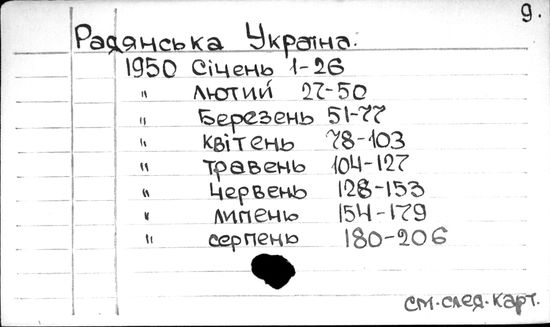 9.
Радянська Україна.
1950 Січень 1-26
" лютий 27-50
" Березень 51-77
" квітень 78-103
" травень 104-127
" червень 128-153
" липень 154-179
" серпень 180-206
см. след. карт.